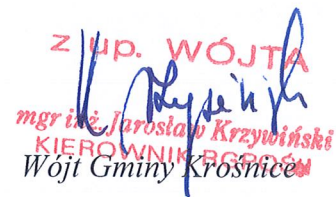 z up. WÓJTA
mgr inż. Jarosław Krzywiński
KIEROWNIK RGROŚ
Wójt Gminy Krośnice